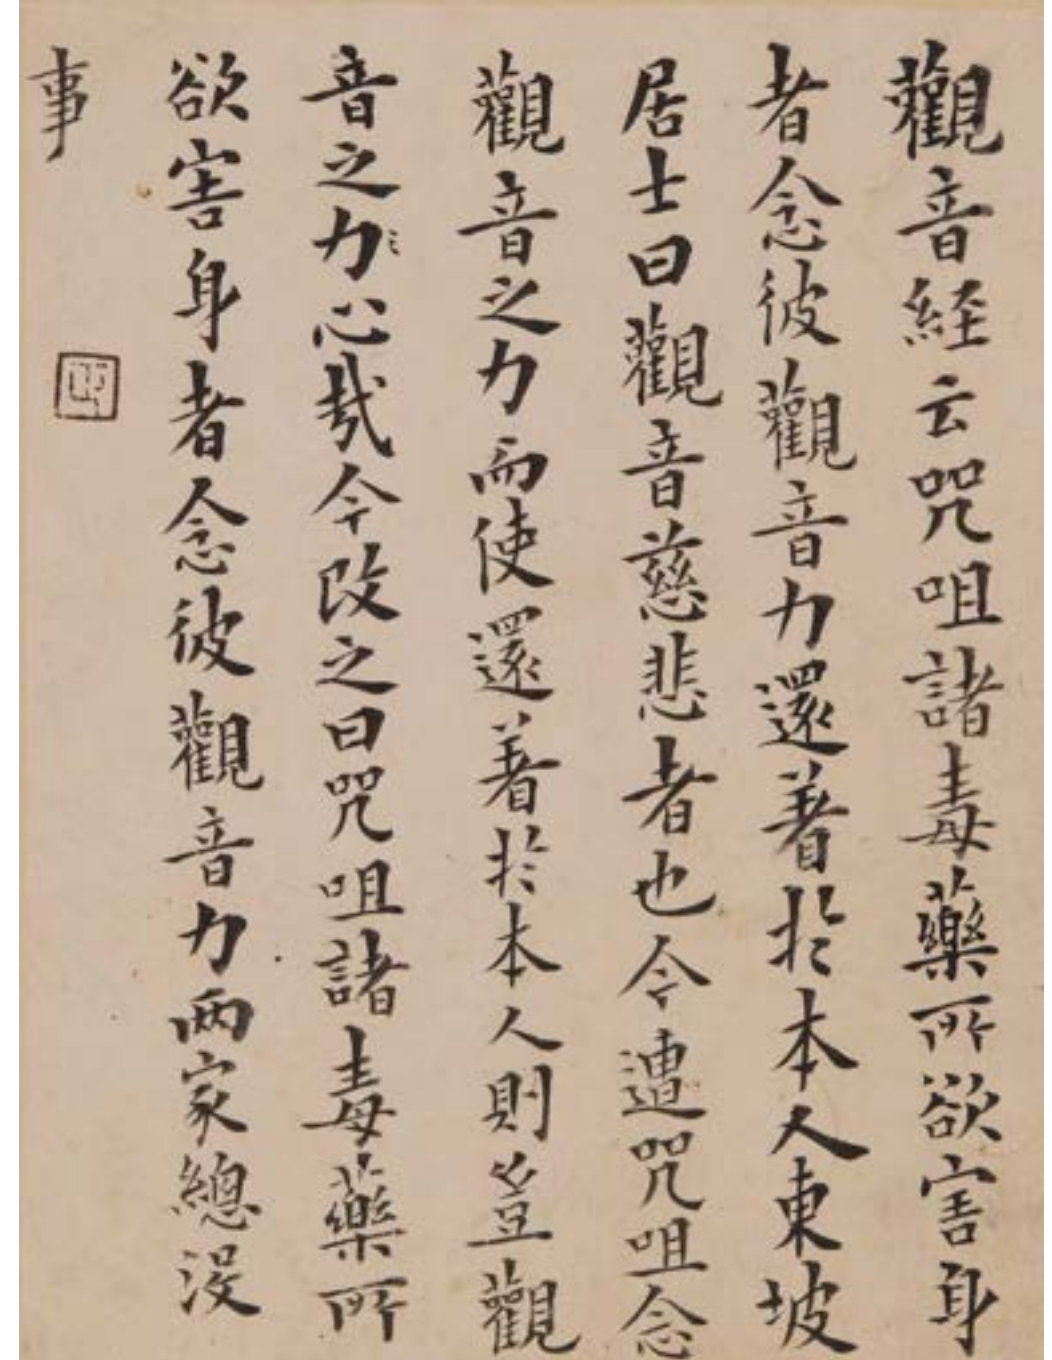 觀音経云咒咀諸毒藥所欲害身
者念彼觀音力還著於本人東坡
居士曰觀音慈悲者也今遭咒咀念
觀音之力而使還著於本人則豈觀
音之力心㢤今改之曰咒咀諸毒藥所
欲害身者念彼觀音力兩家總没
事